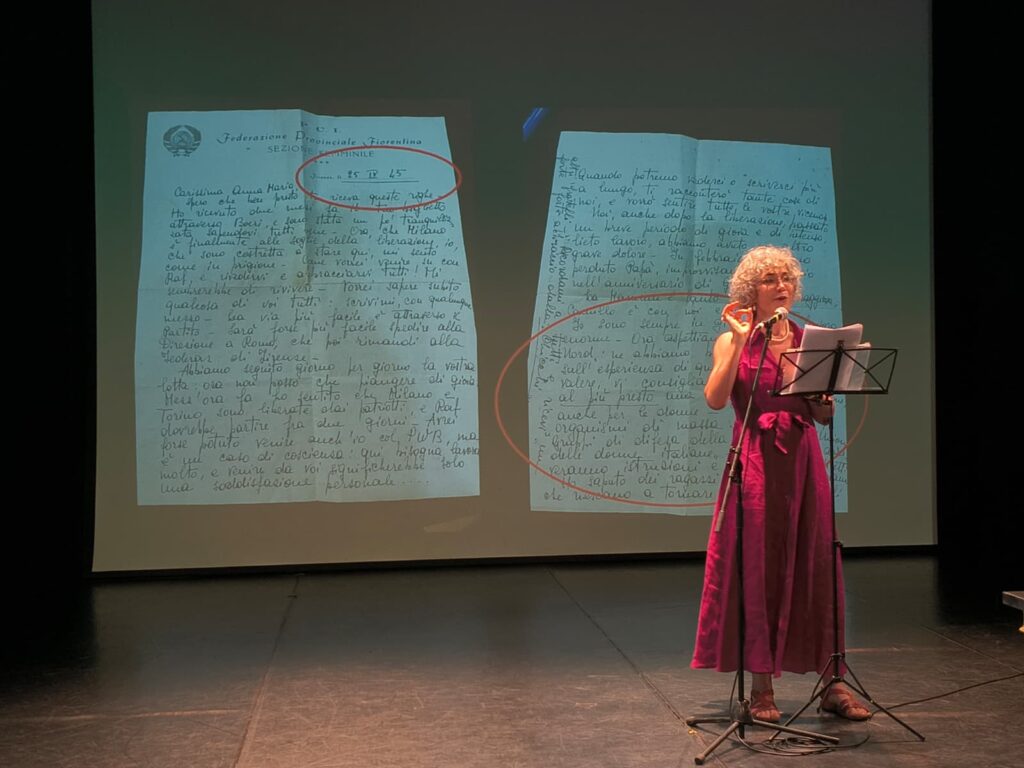 P. C. I.
Federazione Provinciale Fiorentina
SEZIONE FEMMINILE
25 IV 45
Carissima Anna Maria,
spero che ben presto riceva queste righe
Ho ricevuto due mesi fa il tuo biglietto
attraverso Boeri, e sono stata un po' tranquilliz
zata sapendovi tutti Ora, che Milano
è finalmente alle soglie della liberazione, io,
che sono costretta a stare qui, mi sento
come in prigione - Come vorrei venire su con
Raf, e rivedervi e abbracciarvi tutti! Mi
sembrerebbe di rivivere - Vorrei sapere subito
qualcosa di voi tutti: scrivimi, con qualunque
mezzo - La via più facile è attraverso il
Partito - Sarà forse più facile spedire alla
Direzione a Roma, che poi rimandi alla
Federaz. di Firenze -
Abbiamo seguito giorno per giorno la vostra
lotta, ora non posso che piangere di gioia.
Mezz'ora fa ho sentito che Milano e
Torino sono liberate dai patrioti, e Raf
dovrebbe partire fra due giorni - Avrei
forse potuto venire anch'io col PWB, ma
è un caso di coscienza: qui bisogna lavorare
molto, e venire da voi significherebbe solo
una soddisfazione personale....
Quando potremo vederci o scriverci più
a lungo, ti racconterò tante cose di
noi, e vorrò sentire tutte le vostre vicende
Noi, anche dopo la liberazione, passato
un breve periodo di gioia e di intenso
lieto lavoro, abbiamo avuto altro
grave dolore - In febbraio
perduto Papà, improvvisam
nell'anniversario di
La Mamma è
Camillo è con noi
Io sono sempre in
enorme - Ora aspettia
Nord; ne abbiamo b
sull'esperienza di qu
valere, vi consiglia
al più presto una
anche per le donne
organismi di massa
Gruppi di difesa della
delle donne italiane,
veranno istruzioni e
Ho saputo dei ragazzi
che riescano a tornare